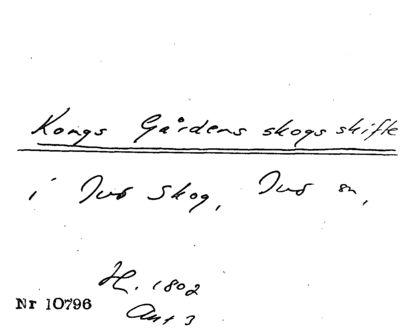 Kongs Gårdens skogsskifte
i Ind Skog, Ind sn,
H. 1802
Ant 3
Nr 10796